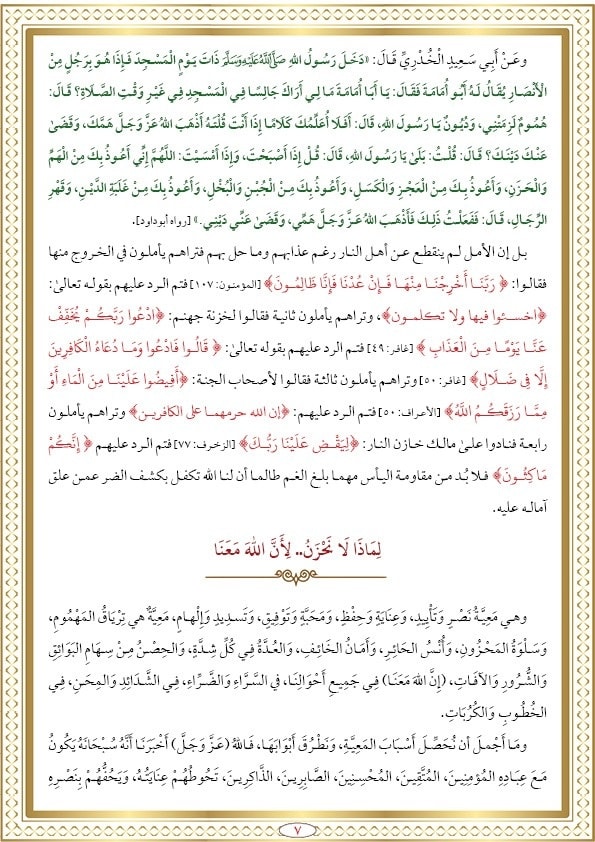 وعَنْ أَبِي سَعِيدٍ الْخُدْرِيِّ قَالَ: «دَخَلَ رَسُولُ اللهِ ﷺ ذَاتَ يَوْمٍ الْمَسْجِدَ فَإِذَا هُوَ بِرَجُلٍ مِنْ
الْأَنْصَارِ يُقَالُ لَهُ أَبُو أُمَامَةَ فَقَالَ: يَا أَبَا أُمَامَةَ مَا لِي أَرَاكَ جَالِسًا فِي الْمَسْجِدِ فِي غَيْرِ وَقْتِ الصَّلَاةِ؟ قَالَ:
هُمُومٌ لَزِمَتْنِي، وَدُيُونٌ يَا رَسُولَ اللهِ، قَالَ: أَفَلَا أُعَلِّمُكَ كَلَامًا إِذَا أَنْتَ قُلْتَهُ أَذْهَبَ اللهُ عَزَّ وَجَلَّ هَمَّكَ، وَقَضَىٰ
عَنْكَ دَيْنَكَ؟ قَالَ: قُلْتُ: بَلَىٰ يَا رَسُولَ اللهِ، قَالَ: قُلْ إِذَا أَصْبَحْتَ، وَإِذَا أَمْسَيْتَ: اللَّهُمَّ إِنِّي أَعُوذُ بِكَ مِنْ الْهَمِّ
وَالْحَزَنِ، وَأَعُوذُ بِكَ مِنْ الْعَجْزِ وَالْكَسَلِ، وَأَعُوذُ بِكَ مِنْ الْجُبْنِ وَالْبُخْلِ، وَأَعُوذُ بِكَ مِنْ غَلَبَةِ الدَّيْنِ، وَقَهْرِ
الرِّجَالِ، قَالَ: فَفَعَلْتُ ذَلِكَ فَأَذْهَبَ اللهُ عَزَّ وَجَلَّ هَمِّي، وَقَضَىٰ عَنِّي دَيْنِي.» [رواه أبوداود].
بل إن الأمل لم ينقطع عن أهل النار رغم عذابهم وما حل بهم فتراهم يأملون في الخروج منها
فقالوا: ﴿ رَبَّنَا أَخْرِجْنَا مِنْهَا فَإِنْ عُدْنَا فَإِنَّا ظَالِمُونَ﴾ [المؤمنون: ١٠٧] فتم الرد عليهم بقوله تعالىٰ:
﴿اخسئوا فيها ولا تكلمون﴾، وتراهم يأملون ثانية فقالوا لخزنة جهنم: ﴿ادْعُوا رَبَّكُمْ يُخَفِّفْ
عَنَّا يَوْمًا مِنَ الْعَذَابِ ﴾ [غافر: ٤٩] فتم الرد عليهم بقوله تعالىٰ: ﴿ قَالُوا فَادْعُوا وَمَا دُعَاءُ الْكَافِرِينَ
إِلَّا فِي ضَلَالٍ﴾ [غافر: ٥٠] وتراهم يأملون ثالثة فقالوا لأصحاب الجنة: ﴿أَفِيضُوا عَلَيْنَا مِنَ الْمَاءِ أَوْ
مِمَّا رَزَقَكُمُ اللَّهُ﴾ [الأعراف: ٥٠] فتم الرد عليهم: ﴿إن الله حرمهما على الكافرين﴾ وتراهم يأملون
رابعة فنادوا علىٰ مالك خازن النار: ﴿لِيَقْضِ عَلَيْنَا رَبُّكَ﴾ [الزخرف: ٧٧] فتم الرد عليهم ﴿ إِنَّكُمْ
مَاكِثُونَ﴾ فلا بد من مقاومة اليأس مهما بلغ الغم طالما أن لنا الله تكفل بكشف الضر عمن علق
آماله عليه.
لِمَاذَا لَا نَحْزَنُ.. لِأَنَّ اللهَ مَعَنَا
وهي مَعِيَّةُ نَصْرٍ وَتَأْيِيدٍ، وَعِنَايَةٍ وَحِفْظٍ، وَمَحَبَّةٍ وَتَوْفِيقٍ، وَتَسْدِيدٍ وَإِلْهَامٍ، مَعِيَّةٌ هي تِرْيَاقُ المَهْمُومِ،
وَسَلْوَةُ المَحْزُونِ، وَأُنْسُ الحَائِرِ، وَأَمَانُ الخَائِفِ، وَالعُدَّةُ فِي كُلِّ شِدَّةٍ، وَالحِصْنُ مِنْ سِهَامِ البَوَائِقِ
وَالشُّرُورِ وَالآفَاتِ، (إِنَّ اللهَ مَعَنَا) فِي جَمِيعِ أَحْوَالِنَا، في السَّرَّاءِ وَالضَّرَّاءِ، فِي الشَّدَائِدِ وَالمِحَنِ، فِي
الخُطُوبِ وَالكُرُبَاتِ.
ومَا أَجْمَلَ أن نُحَصِّلَ أَسْبَابَ المَعِيَّةِ، وَنَطْرُقَ أَبْوَابَهَا، فَاللهُ (عَزَّ وَجَلَّ) أَخبَرَنَا أَنَّهُ سُبْحَانَهُ يَكُونُ
مَعَ عِبَادِهِ المُؤْمِنِينَ، المُتَّقِينَ، المُحْسِنِينَ، الصَّابِرِينَ، الذَّاكِرِينَ، تَحُوطُهُمْ عِنَايَتُهُ، وَيَحُفُّهُمْ بِنَصْرِهِ
٧